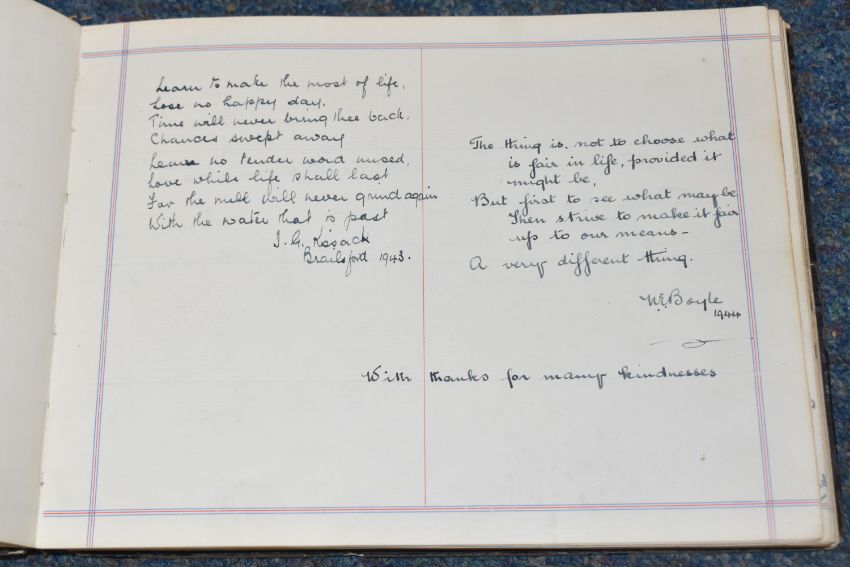 Learn to make the most of life,
Lose no happy day.
Time will never bring thee back.
Chances swept away
Leave no tender word unsed,
Love while life shall last
For the mill will never grind again
With the water that is past
J. G. Kissack
Brailsford 1943.
The thing is, not to choose what
is fair in life, provided it
might be,
But first to see what may be
Then strive to make it fair
up to our means -
A very different thing.
N.E. Boyle
1944
With thanks for many kindnesses